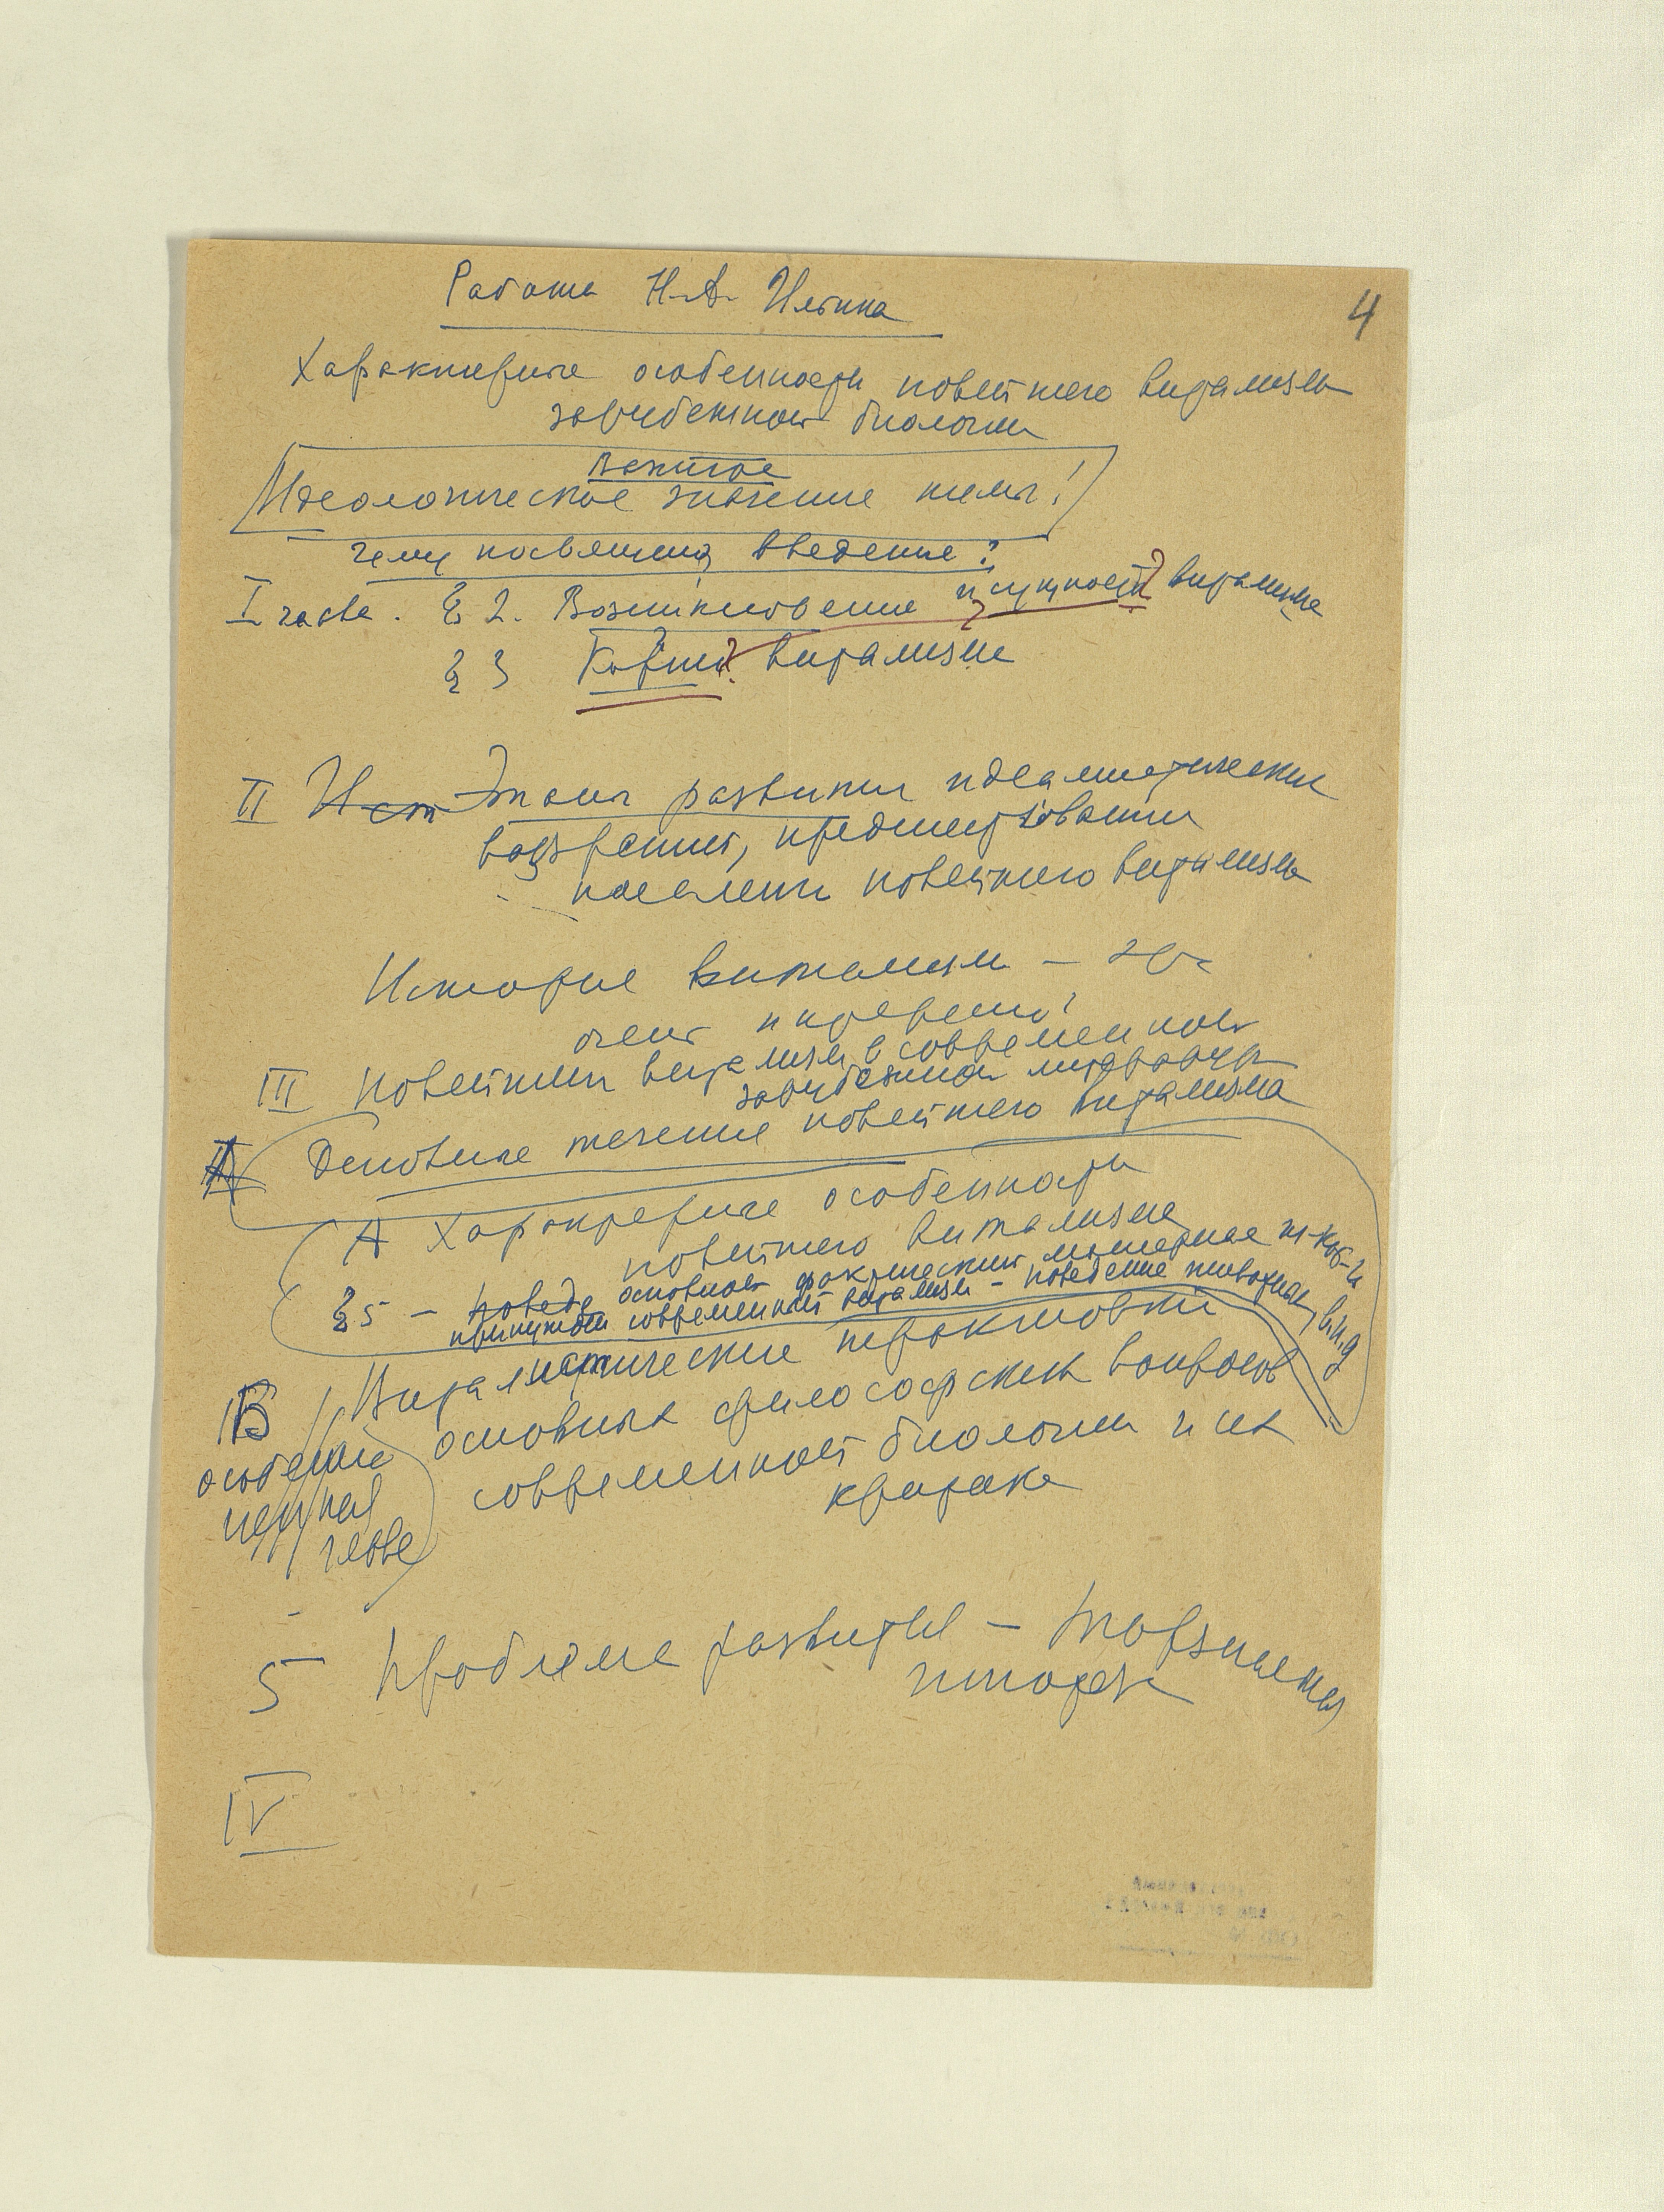 4
Работа Н.А. Ильина
Характерные особенности новейшего витализма
зарубежной биологии
важное
Идеологическое значение темы!
Чему посвящено введение?
I глава. § 2. Возникновение и сущность? витализма
§ 3 Корни? витализма
II Ист Этапы развития идеалистических
воззрений, предшествовавших
появлению новейшего витализма
История витализма —
очень интересно!
III Новейший витализм в современной
зарубежной литературе
Основные течения новейшего витализма
А Характерные особенности
новейшего витализма
§ 5 — Поведе основной фактический материал из кот-й
современный витализм — поведение животных, инд
В Виталистические трактовки
основных философских вопросов
современной биологии и их
критика
особенно
ценная
глава
5 Проблема развития —
IV